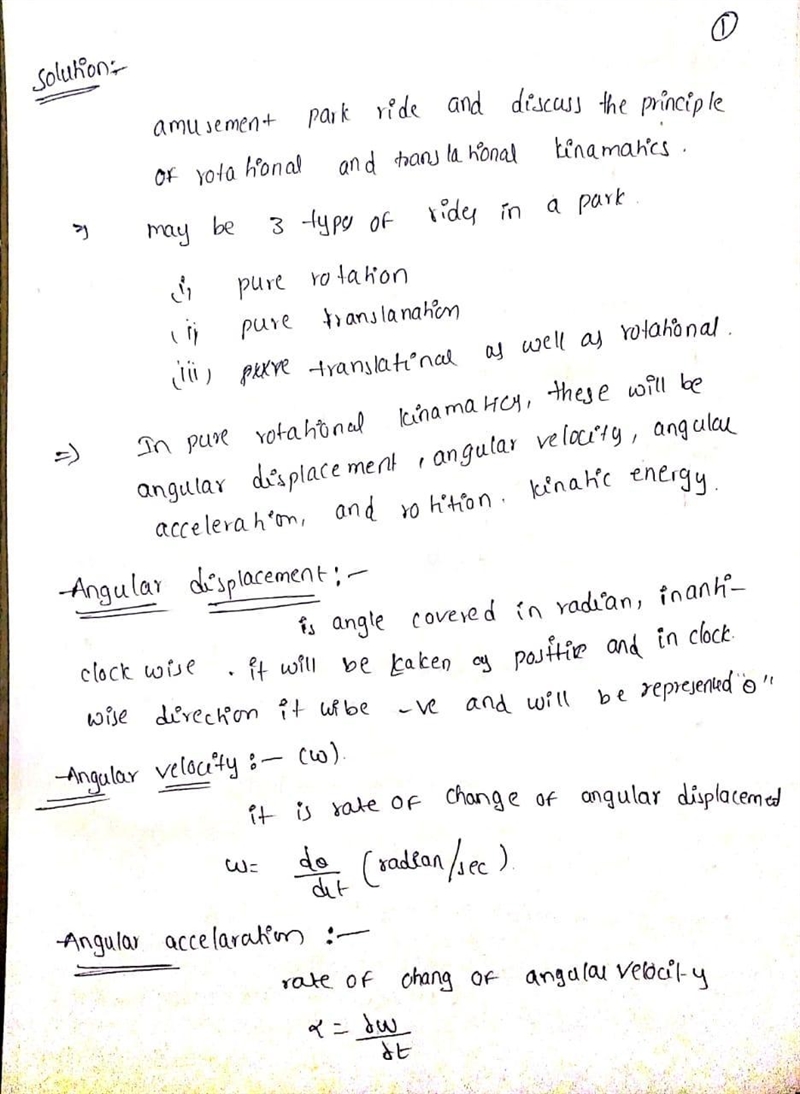 ①
Solution:-
amusement park ride and discuss the principle
of rotational and translational kinamatics.
⇒ may be 3 type of rides in a park.
(i) pure rotation
(ii) pure translanation
(iii) translational as well as rotational.
⇒ In pure rotational kinamatics, these will be
angular displacement, angular velocity, angular
acceleration, and rotition. kinatic energy.
Angular displacement:-
is angle covered in radian, in anti-
clock wise. it will be taken as positive and in clock.
wise direction it wibe -ve and will be represented "θ"
Angular velocity:- (ω).
it is rate of change of angular displacemed
ω= dθ/dt (radian/sec).
Angular accelaration:-
rate of chang of angular velocity
α = dω/dt